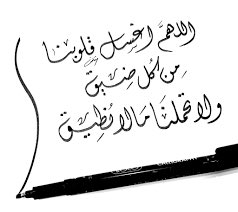 اللهمَّ اغسل قلوبنا
من كل ضيق
ولا تحملنا مالا نطيق